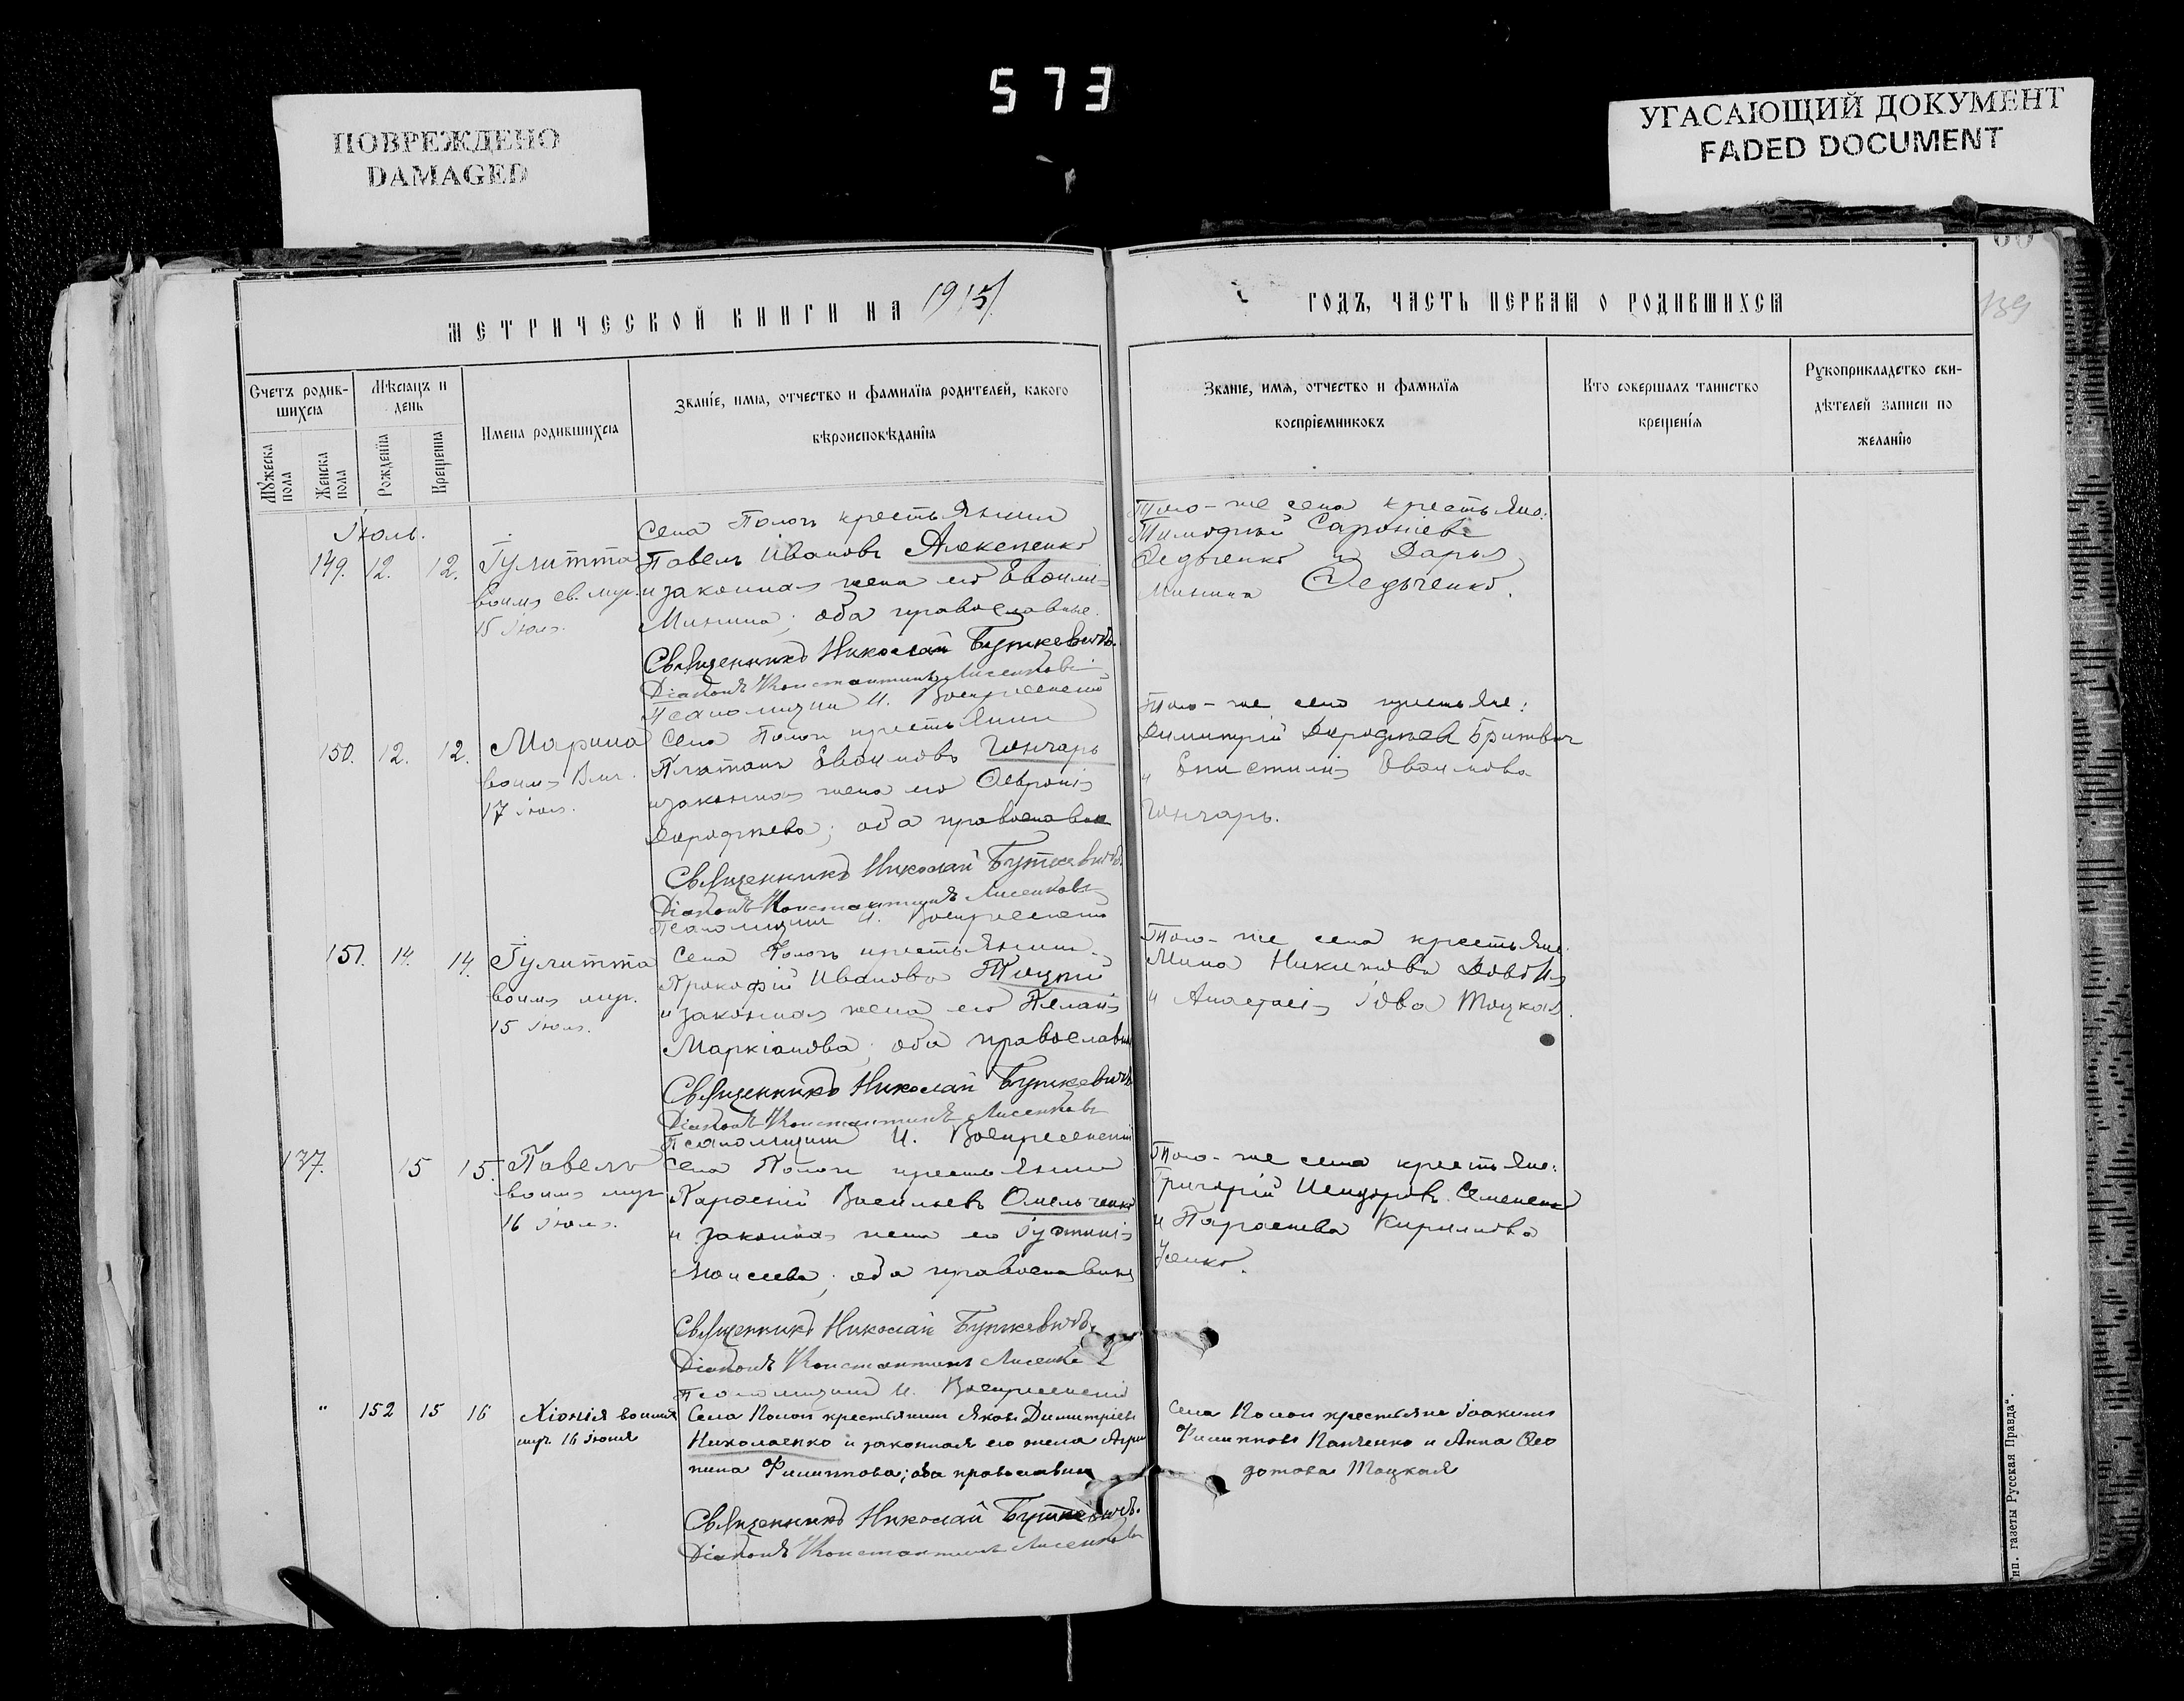 573
ПОВРЕЖДЕНО
DAMAGED
УГАСАЮЩИЙ ДОКУМЕНТ
FADED DOCUMENT
МЕТРИЧЕСКОЙ КНИГИ НА 1915
ГОДЪ, ЧАСТЬ ПЕРВАЯ О РОДИВШИХСЯ
139
Счетъ родив-
шихся
Мѣсяцъ и
день
Мужеска пола
Женска пола
Рожденія
Крещенія
Имена родившихся
Званіе, имя, отчество и фамилія родителей, какого
вѣроисповѣданія
Званіе, имя, отчество и фамилія
воспріемниковъ
Кто совершалъ таинство
крещенія
Рукоприкладство сви-
дѣтелей записи по
желанію
Іюль.
149. 12. 12.
Іулитта
воимя св. муч.
15 іюля.
Села Пологъ крестьянинъ
Павелъ Ивановъ Алексеенко
и законная жена его Евфимія
Минина; оба православные.
Священникъ Николай Буткевичъ.
Діаконъ Константинъ Лисенковъ
Псаломщикъ И. Воскресенскій
Того-же села крестьяне:
Тимофей
Федченко и Дарья
Минина Федченко.
150. 12. 12.
Марина
воимя Влмч.
17 іюля.
Села Пологи крестьянинъ
Платонъ Евфимовъ Гончаръ
и законная жена его Февронія
Дорофеева; оба православные
Священникъ Николай Буткевичъ.
Діаконъ Константинъ Лисенковъ
Псаломщикъ И. Воскресенскій
Того-же села крестьяне:
Димитрій Дорофеевъ Бритвич
и Епистилія Евфимова
Гончаръ.
151. 14. 14.
Іулитта
воимя муч.
15 іюля.
Села Пологъ крестьянинъ
Прокофій Ивановъ Тоцкій
и законная жена его Пелагія
Маркіанова; оба православные
Священникъ Николай Буткевичъ
Діаконъ Константинъ Лисенковъ
Псаломщикъ И. Воскресенскій
Того-же села крестьяне:
Мина Никитовъ
и Анастасія Іова Тоцкая.
137. 15 15.
Павелъ
воимя муч.
16 іюля.
Села Пологи крестьянинъ
Васильевъ Омельченко
и законная жена его Іустинія
Моисеева; оба православные
Священникъ Николай Буткевичъ.
Діаконъ Константинъ Лисенковъ
Псаломщикъ И. Воскресенскій
Того-же села крестьяне:
Григорій Исидоровъ Семененко
и Параскева Кириллова
Усенко.
" 152 15 16
Хіонія воимя
муч. 16 іюля
Села Пологи крестьянинъ Яковъ Димитріевъ
Николаенко и законная его жена Агрип
пина Филиппова; оба православные
Священникъ Николай Буткевичъ.
Діаконъ Константинъ Лисенковъ
Села Пологи крестьяне Іоакимъ
Филипповъ Панченко и Анна Фео
дотова Тоцкая
Тип. газеты Русская Правда".